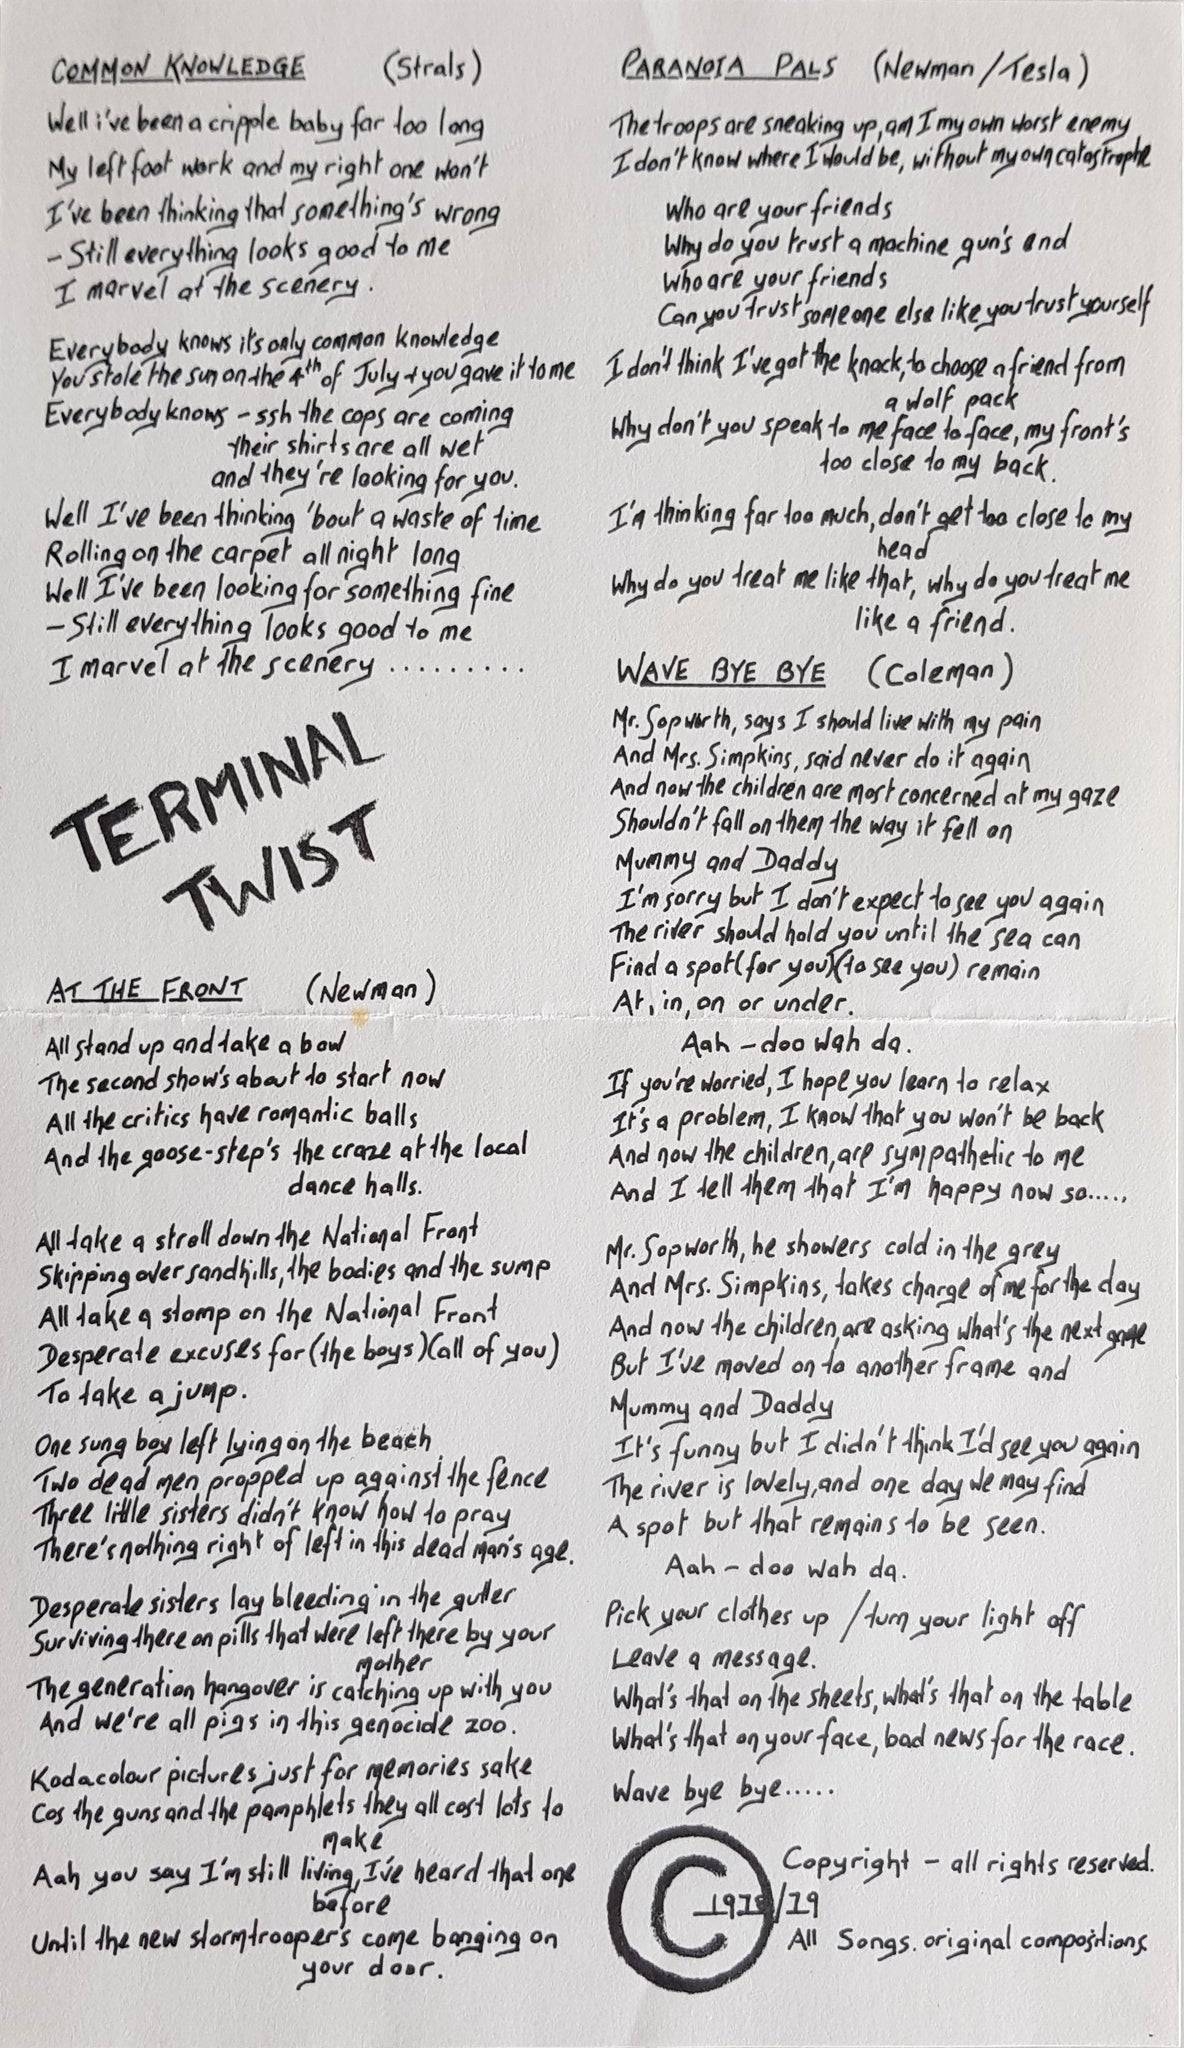 COMMON KNOWLEDGE (Strals)
Well i've been a cripple baby far too long
My left foot work and my right one won't
I've been thinking that something's wrong
- Still everything looks good to me
I marvel at the scenery.
Everybody knows it's only common knowledge
You stole the sun on the 4th of July + you gave it to me
Everybody knows - ssh the cops are coming
their shirts are all wet
and they're looking for you.
Well I've been thinking 'bout a waste of time
Rolling on the carpet all night long
Well I've been looking for something fine
- Still everything looks good to me
I marvel at the scenery .........
TERMINAL
TWIST
AT THE FRONT (Newman)
All stand up and take a bow
The second show's about to start now
All the critics have romantic balls
And the goose-step's the craze at the local
dance halls.
All take a stroll down the National Front
Skipping over sandhills, the bodies and the sump
All take a stomp on the National Front
Desperate excuses for (the boys) (all of you)
To take a jump.
One sung boy left lying on the beach
Two dead men propped up against the fence
Three little sisters didn't know how to pray
There's nothing right of left in this dead man's age.
Desperate sisters lay bleeding in the gutter
Surviving there on pills that were left there by your
mother
The generation hangover is catching up with you
And we're all pigs in this genocide zoo.
Kodacolour pictures just for memories sake
Cos the guns and the pamphlets they all cost lots to
make
Aah you say I'm still living, I've heard that one
before
Until the new stormtrooper's come banging on
your door.
PARANOIA PALS (Newman/Tesla)
The troops are sneaking up, am I my own worst enemy
I don't know where I would be, without my own catastrophe
Who are your friends
Why do you trust a machine gun's end
Who are your friends
Can you trust someone else like you trust yourself
I don't think I've got the knack, to choose a friend from
a wolf pack
Why don't you speak to me face to face, my front's
too close to my back.
I'm thinking far too much, don't get too close to my
head
Why do you treat me like that, why do you treat me
like a friend.
WAVE BYE BYE (Coleman)
Mr. Sopworth, says I should live with my pain
And Mrs. Simpkins, said never do it again
And now the children are most concerned at my gaze
Shouldn't fall on them the way it fell on
Mummy and Daddy
I'm sorry but I don't expect to see you again
The river should hold you until the sea can
Find a spot (for you) (to see you) remain
At, in, on or under.
Aah - doo wah da.
If you're worried, I hope you learn to relax
It's a problem, I know that you won't be back
And now the children, are sympathetic to me
And I tell them that I'm happy now so.....
Mr. Sopworth, he showers cold in the grey
And Mrs. Simpkins, takes charge of me for the day
And now the children, are asking what's the next game
But I've moved on to another frame and
Mummy and Daddy
It's funny but I didn't think I'd see you again
The river is lovely, and one day we may find
A spot but that remains to be seen.
Aah - doo wah da.
Pick your clothes up / turn your light off
Leave a message.
What's that on the sheets, what's that on the table
What's that on your face, bad news for the race.
Wave bye bye.....
Copyright - all rights reserved.
© 1978/79
All Songs. original compositions.